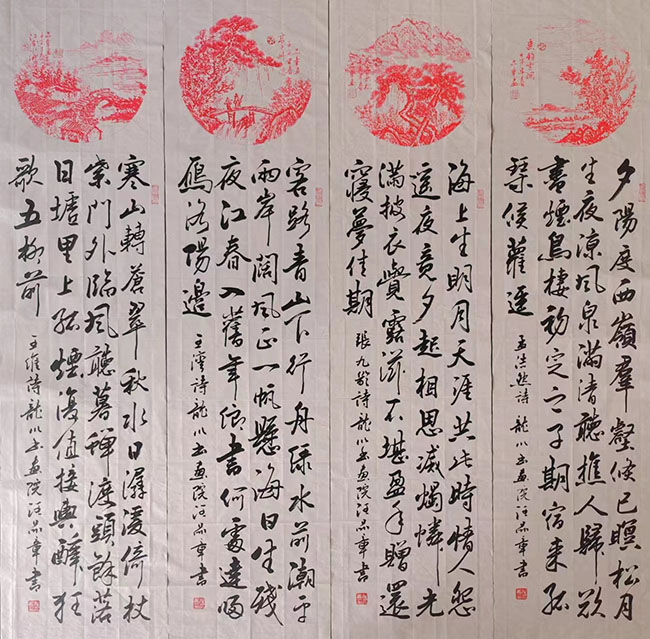 夕陽度西嶺羣壑倏已暝松月
生夜凉風泉滿清聽樵人歸欲
盡煙鳥棲初定之子期宿來孤
琴候蘿逕
孟浩然詩 龍川書畫院汪 章書
海上生明月天涯共此時情人怨
遥夜竟夕起相思滅燭憐光
滿披衣覺露滋不堪盈手贈還
寢夢佳期
張九齡詩龍川書畫院汪 章書
客路青山下行舟綠水前潮平
兩岸闊風正一帆懸海日生殘
夜江春入舊年鄉書何處達歸
鴈洛陽邊
王灣詩龍川書畫院汪 章書
寒山轉蒼翠秋水日潺湲倚杖
柴門外臨風聽暮蟬渡頭餘落
日墟里上孤煙復值接輿醉狂
歌五柳前
王維詩龍川書畫院汪 章書